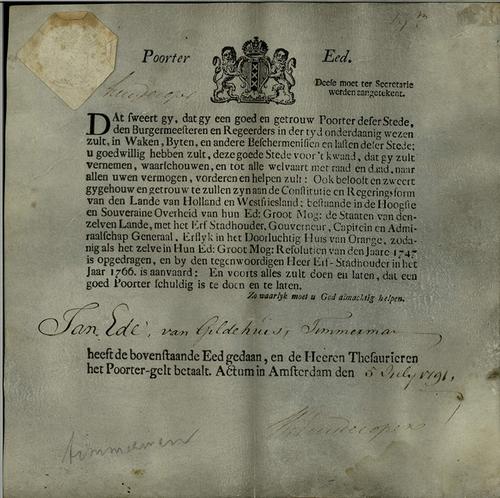 Poorter Eed.
Deese moet ter Secretarie
werden aangetekent.
DAt sweert gy, dat gy een goed en getrouw Poorter deser Stede,
den Burgermeesteren en Regeerders in der tyd onderdaanig wezen
zult, in Waken, Byten, en andere Beschermenissen en lasten deser Stede;
u goedwillig hebben zult, deze goede Stede voor 't kwaad, dat gy zult
vernemen, waarschouwen, en tot alle welvaart met raad en daad, naar
allen uwen vermogen, vorderen en helpen zult: Ook belooft en zweert
gy gehouw en getrouw te zullen zyn aan de Constitutie en Regeringsform
van den Lande van Holland en Westfriesland; bestaande in de Hoogste
en Souveraine Overheid van hun Ed: Groot Mog: de Staaten van den-
zelven Lande, met het Erf Stadhouder, Gouverneur, Capitein en Admi-
raalschap Generaal, Erflyk in het Doorluchtig Huis van Orange, zoda-
nig als het zelve in Hun Ed: Groot Mog: Resolutien van den Jaare 1747
is opgedragen, en by den tegenwoordigen Heer Erf-Stadhouder in het
Jaar 1766. is aanvaard: En voorts alles zult doen en laten, dat een
goed Poorter schuldig is te doen en te laten.
Zo waarlyk moet u God almachtig helpen.
Jan Ede, van Gildehuis, Timmerman
heeft de bovenstaande Eed gedaan, en de Heeren Thesaurieren
het Poorter-gelt betaalt. Actum in Amsterdam den 5 July 1791,
timmerman